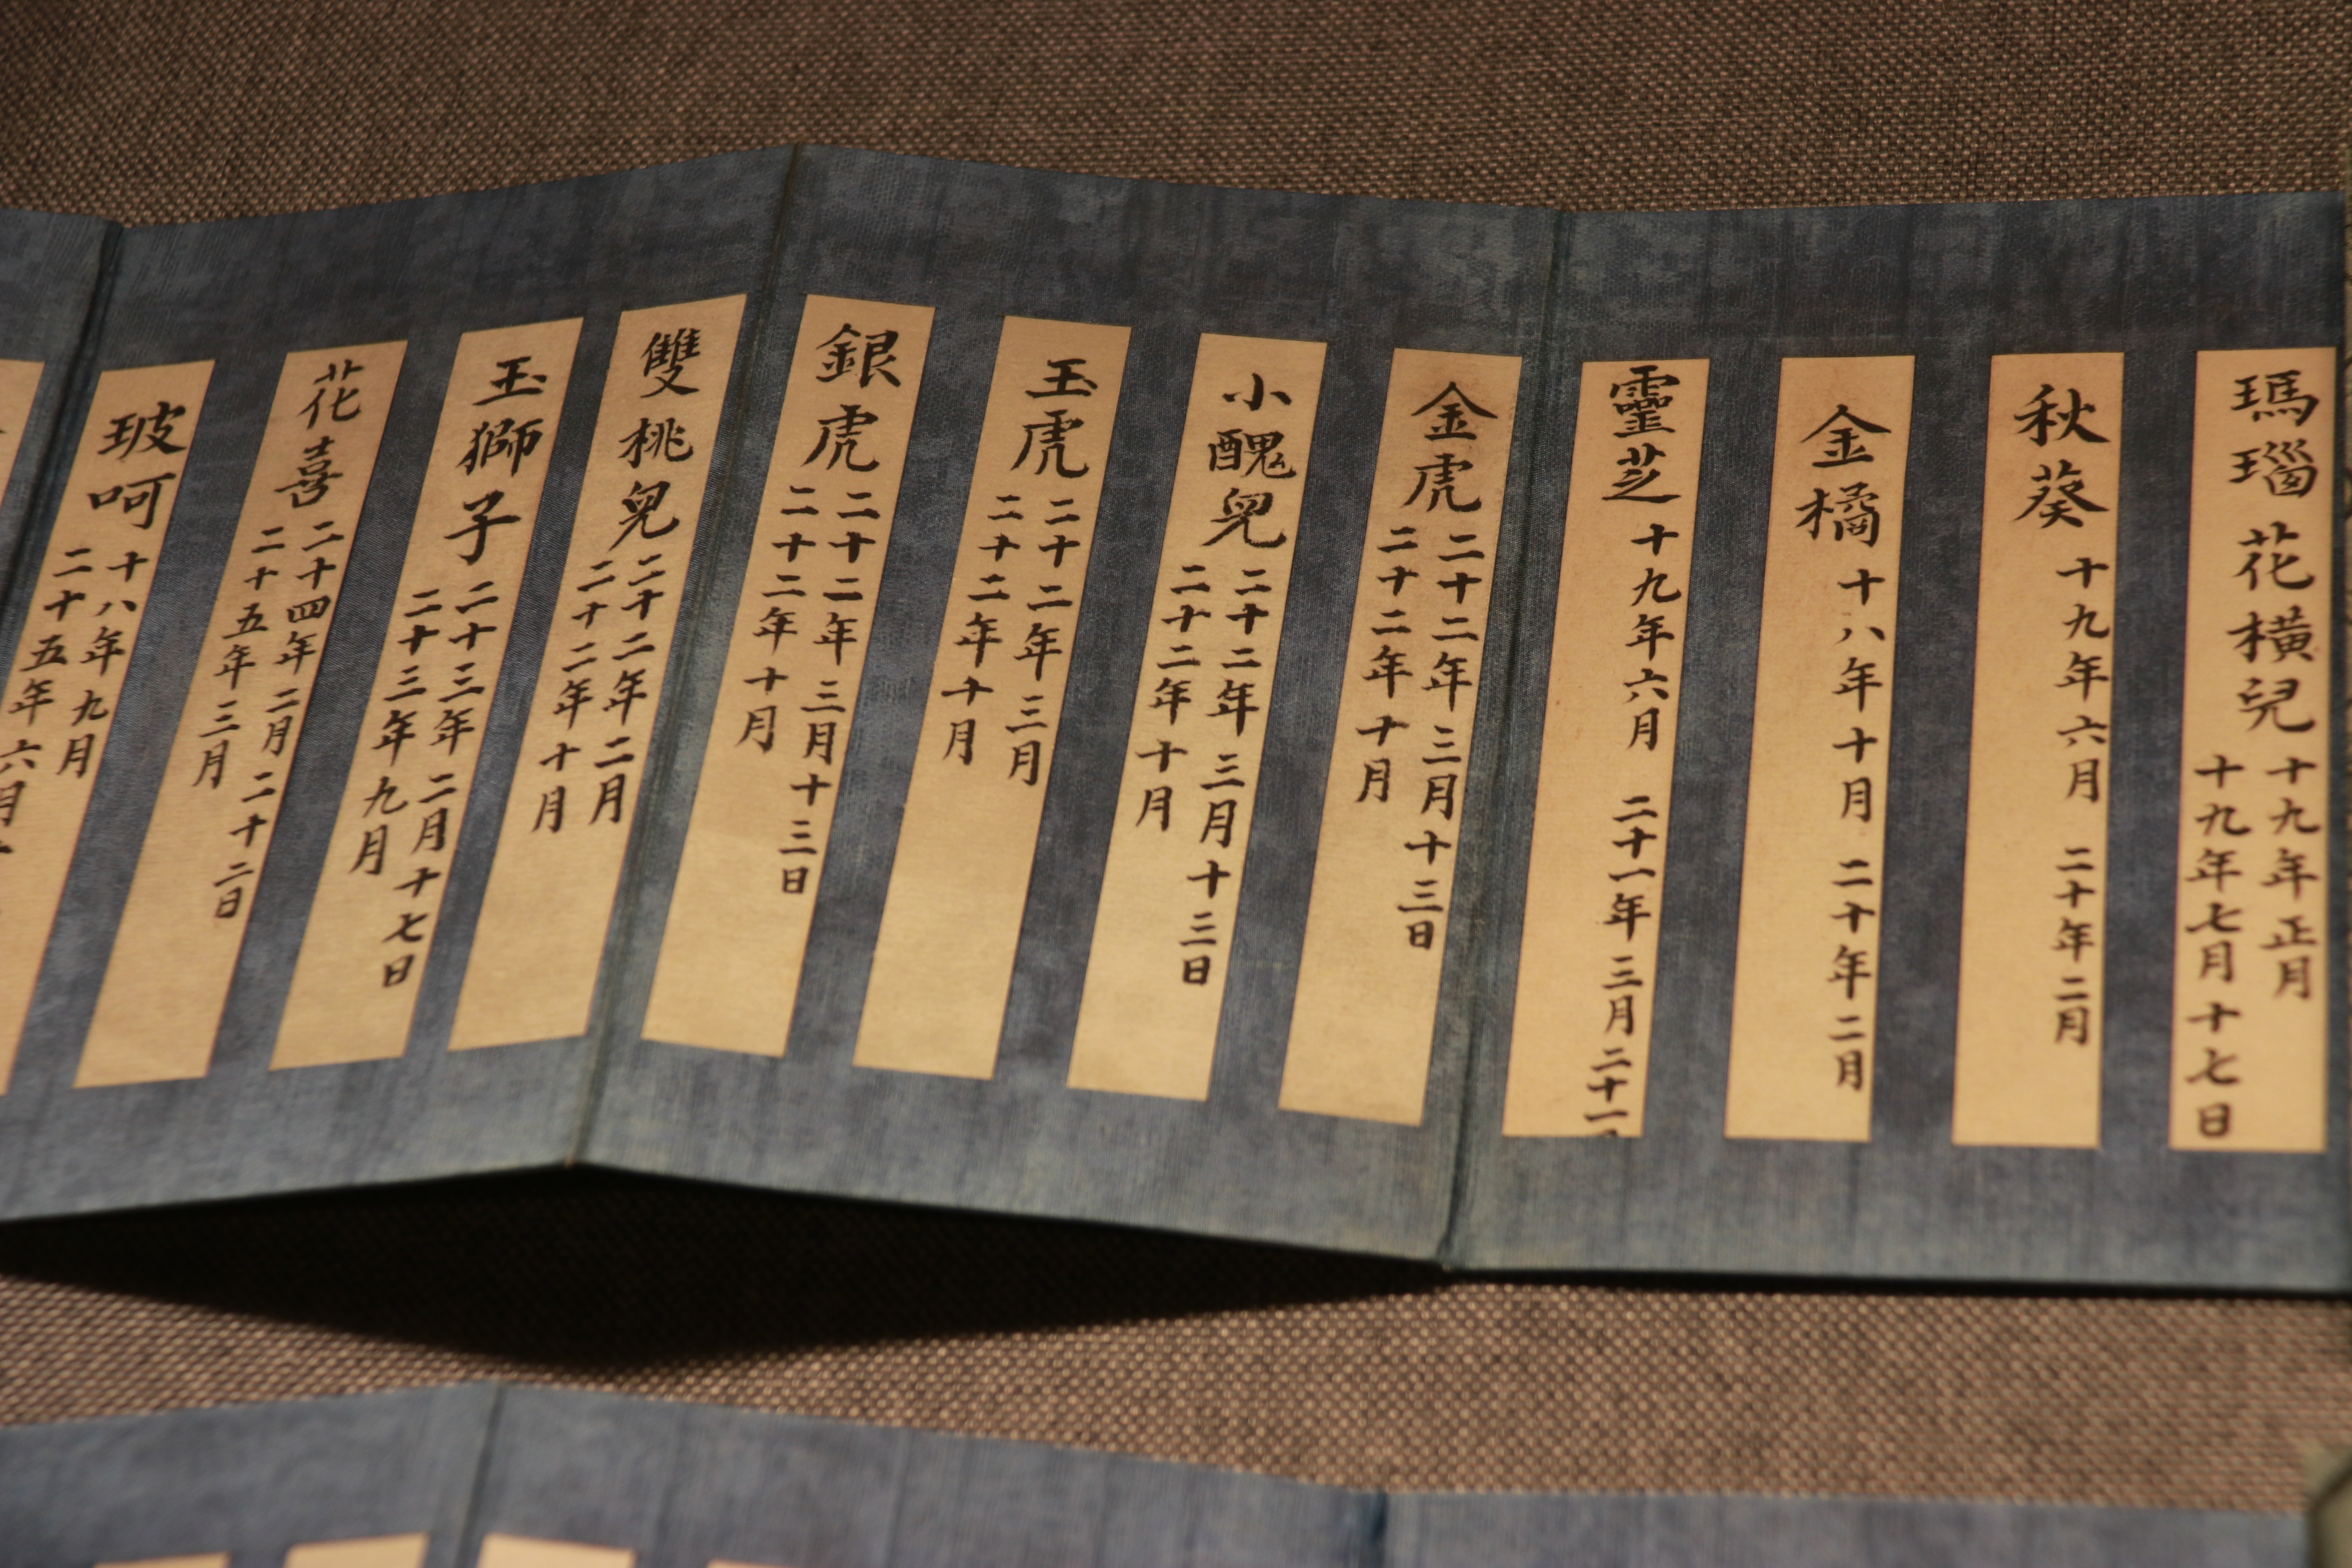 瑪瑙花橫兒
十九年正月
十九年七月十七日
秋葵
十九年六月 二十年二月
金橘
十八年十月 二十年二月
靈芝
十九年六月 二十一年三月二十一
金虎
二十二年三月十三日
二十二年十月
小醜兒
二十二年三月十三日
二十二年十月
玉虎
二十二年三月
二十二年十月
銀虎
二十二年三月十三日
二十二年十月
雙桃兒
二十二年二月
二十二年十月
玉獅子
二十三年二月十七日
二十三年九月
花喜
二十四年二月二十二日
二十五年三月
玻呵
十八年九月
二十五年六月